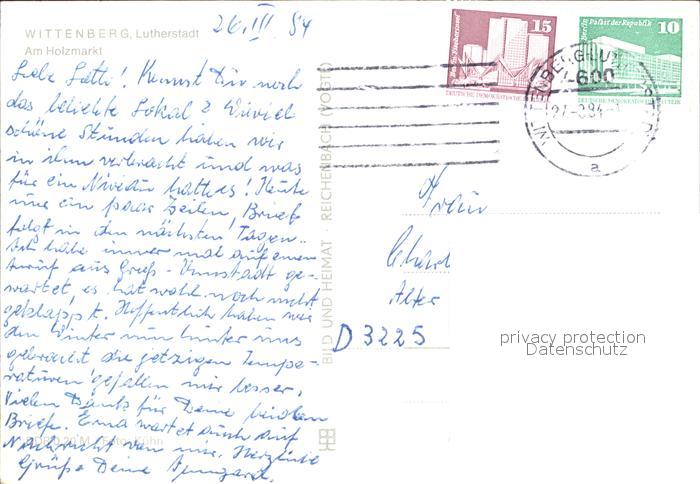 26. III 84
WITTENBERG, Lutherstadt
Am Holzmarkt
15
Berlin, Palast der Republik
10
DEUTSCHE DEMOKRATISCHE
DEUTSCHE DEMOKRATISCHE REPUBLIK
4600
27.-3.84-1
a
Liebe Lotti! Kennst Du noch
das beliebte Lokal? Wieviel
schöne Stunden haben wir
in ihm verbracht und was
für ein Niveau hatte es! Heute
nur ein paar Zeilen, Brief
folgt in den nächsten Tagen..
Ich habe immer mal auf einen
Anruf aus Groß-Umstadt ge-
wartet, es hat wohl noch nicht
geklappt. Hoffentlich haben wir
den Winter nun hinter uns
gebracht, die jetzigen Tempe-
raturen gefallen mir besser.
Vielen Dank für Deine beiden
Briefe. Erna wartet auch auf
Nachricht von mir. Herzliche
Grüße Deine
BILD UND HEIMAT · REICHENBACH (VOGTL)
Frau
Alter
D 3225
privacy protection
Datenschutz